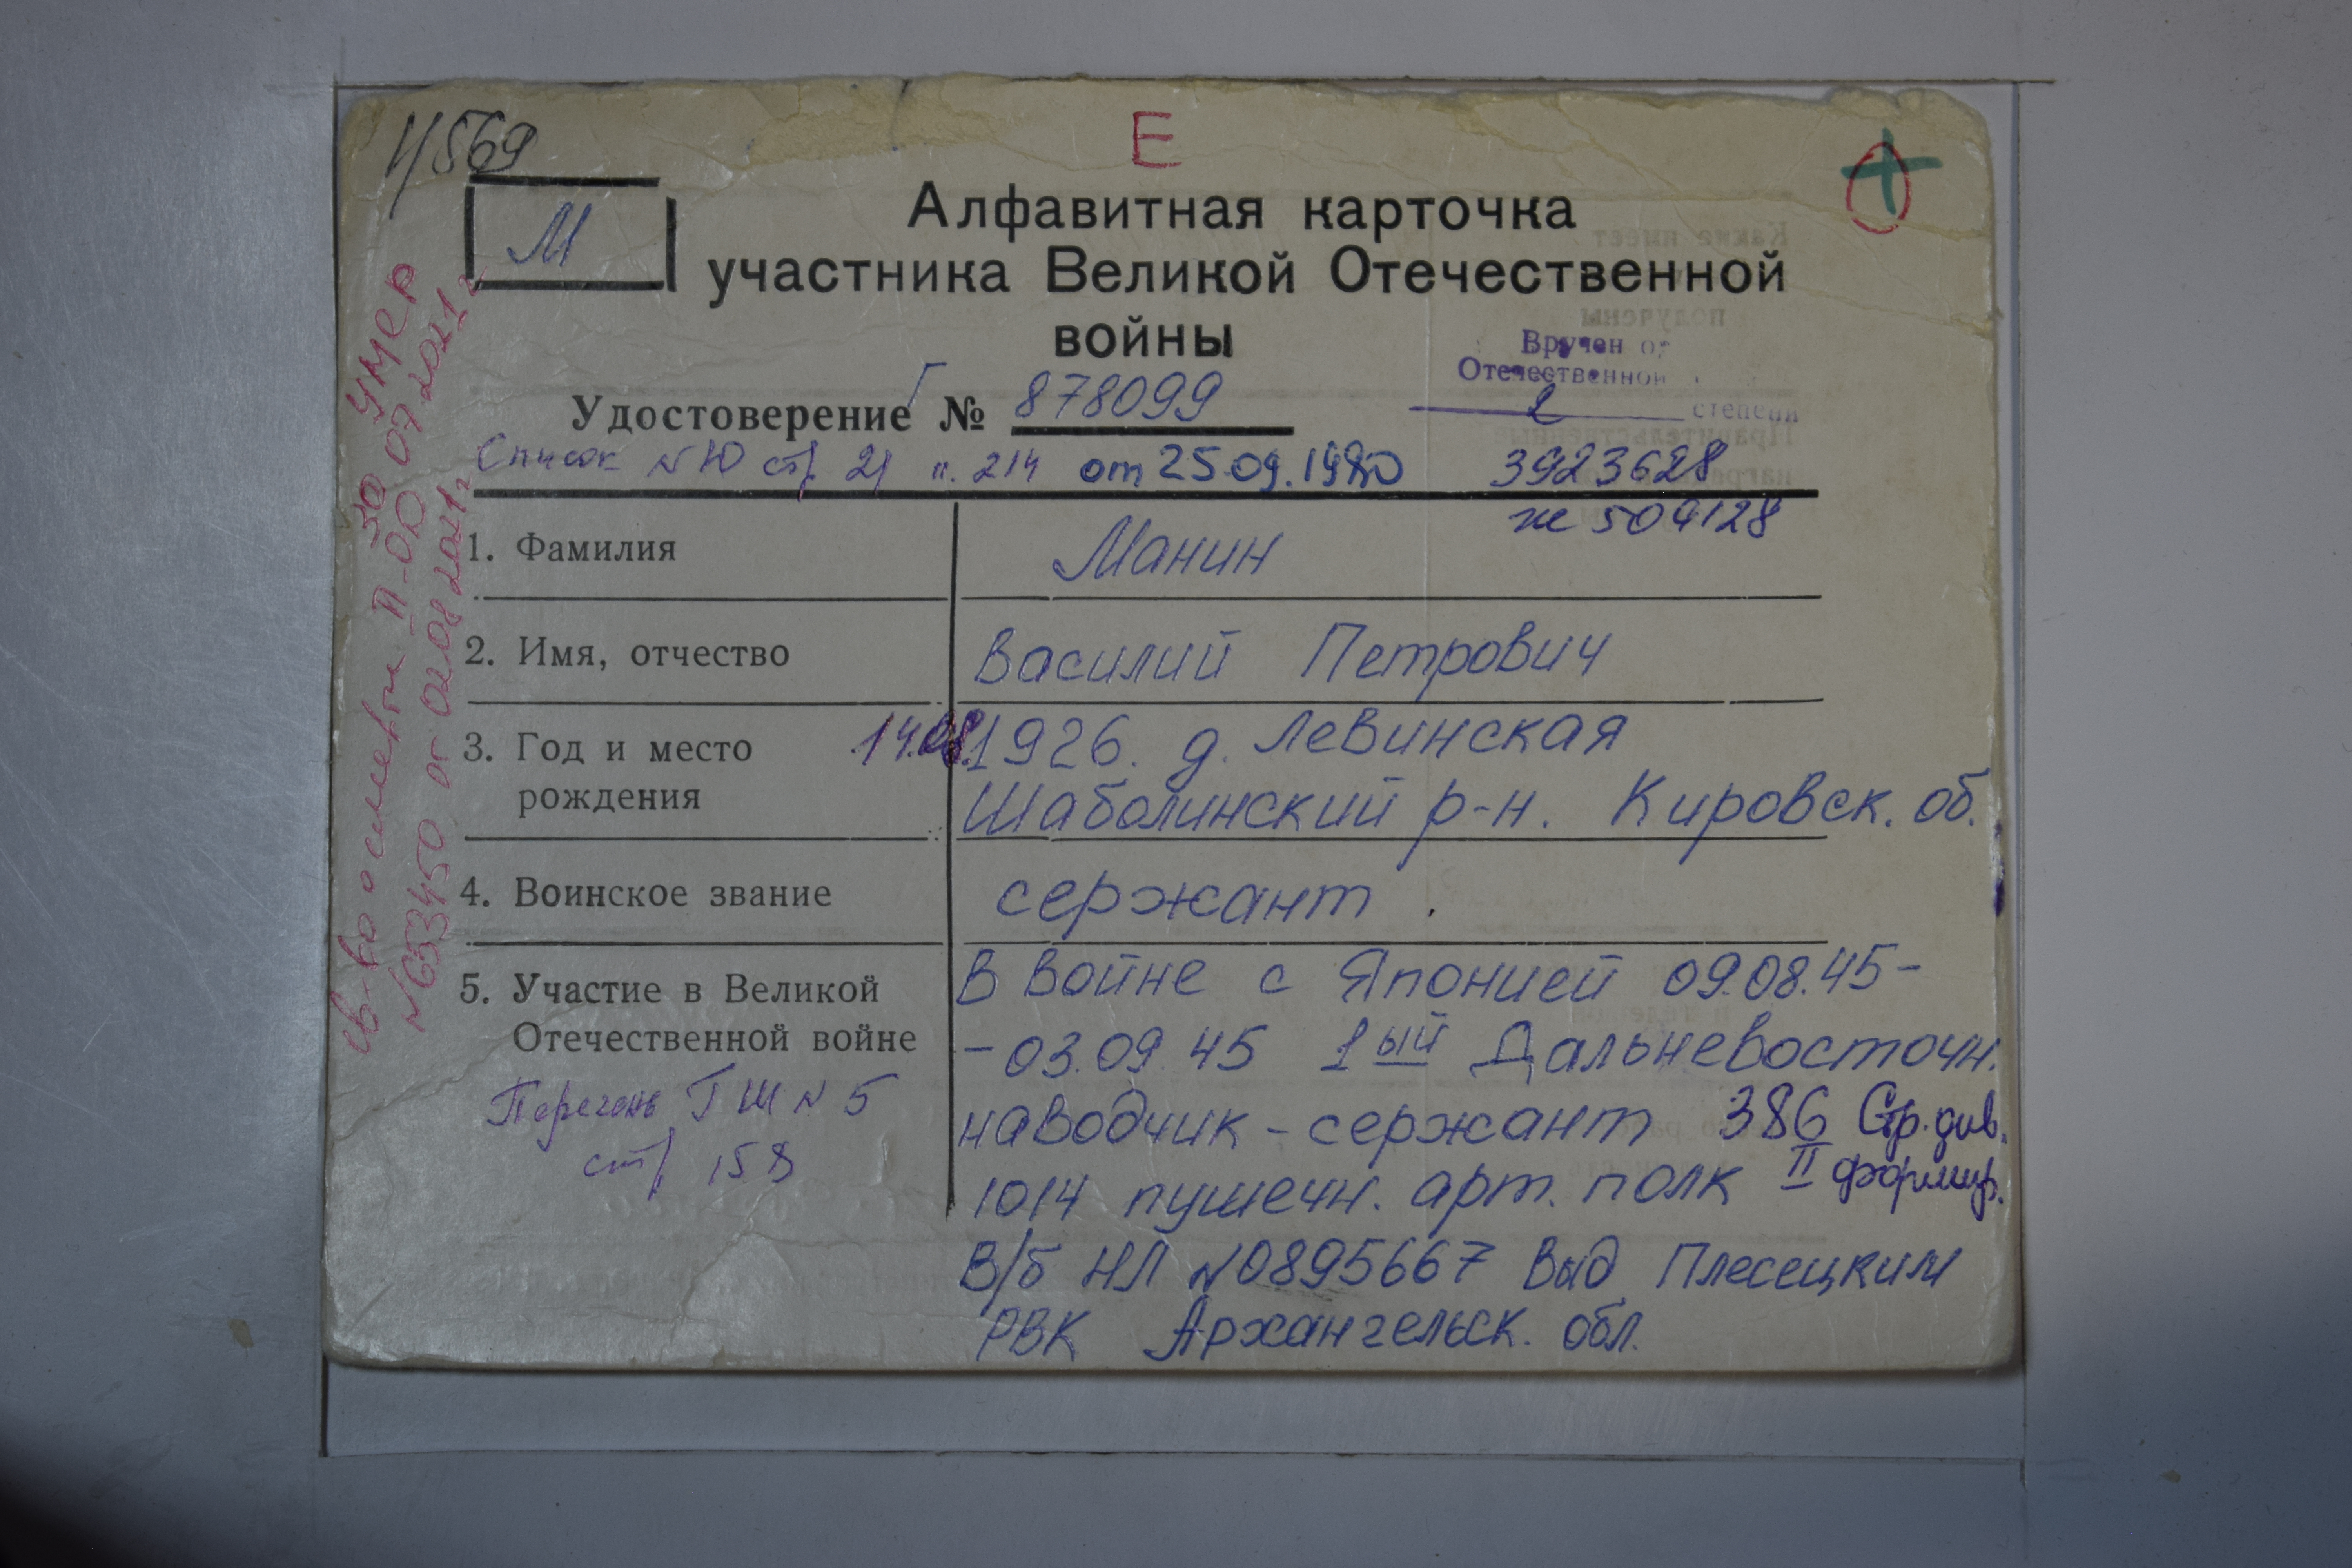 Е
М
Алфавитная карточка
участника Великой Отечественной
войны
Вручен ор
Отечественной
2 степени
Удостоверение Г № 878099
Список №10 стр 21 п. 214 от 25.09.1980 3923628
же 504128
1. Фамилия Манин
2. Имя, отчество Василий Петрович
3. Год и место 14.08.1926. д. Левинская
рождения Шаболинский р-н. Кировск. об.
4. Воинское звание сержант
5. Участие в Великой В войне с Японией 09.08.45-
Отечественной войне -03.09.45 1ый Дальневосточн.
Перечень ГШ №5 наводчик - сержант 386 Стр. див.
стр 158 1014 пушечн. арт. полк II формир.
В/б НЛ №0895667 Выд Плесецким
РВК Архангельск. обл.
умер
30 07 2021 г
св-во о смерти II-
№653450 от 02.08 2021г